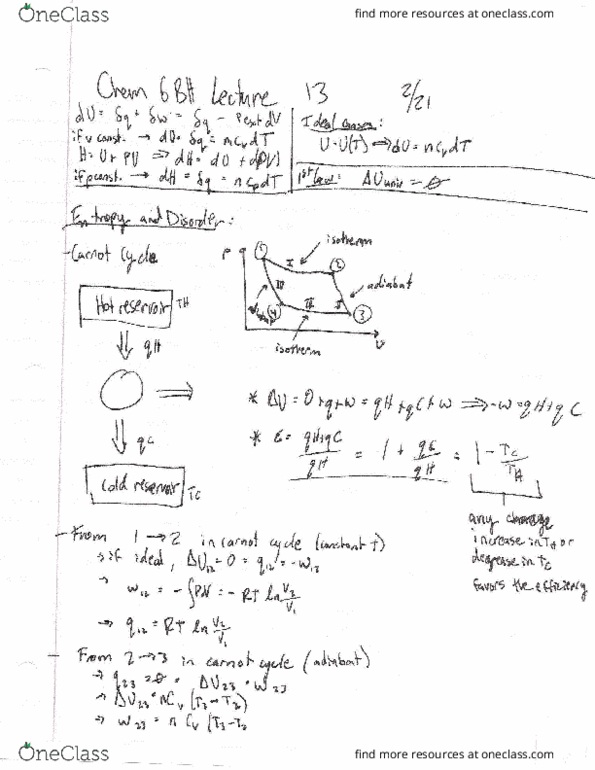 OneClass
find more resources at oneclass.com
Chem 6BH Lecture 13 2/21
dU = δq + δw = δq - Pext dV
if v const. → dU = δq = nCv dT
H = U + PV ⇒ dH = dU + d(PV)
if p const. → dH = δq = n Cp dT
Ideal gases:
U = U(T) ⇒ dU = nCv dT
1st Law: ΔUuniv = 0
Entropy and Disorder:
- Carnot Cycle
Hot reservoir TH
qH
qC
Cold reservoir TC
P
① I isotherm
②
III adiabat
④ III II ③
isotherm
V
* ΔU = 0 = q+w = qH + qC + w ⇒ -w = qH + qC
* ε = qH+qC / qH = 1 + qC / qH = 1 - Tc / TH
any change
increase in TH or
decrease in Tc
favors the efficiency
- From 1 → 2 in carnot cycle (constant T)
→ if ideal, ΔU12 = 0 = q12 = -w12
→ w12 = -∫PdV = -RT ln V2/V1
→ q12 = RT ln V2/V1
- From 2 → 3 in carnot cycle (adiabat)
→ q23 = 0 = ΔU23 = w23
→ ΔU23 = nCv (T3 - T2)
→ w23 = n Cv (T3 - T2
OneClass
find more resources at oneclass.com